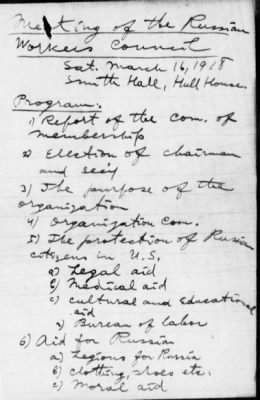 Meeting of the Russian
Workers Council
Sat. March 16, 1918
Smith Hall, Hull House.
Program:
1) Report of the com. of
membership
2) Election of chairman
and sec'y
3) The purpose of the
organization
4) Organization Com.
5) The protection of Russian
citizens in U.S.
a) Legal aid
b) Medical aid
c) cultural and educational
aid
d) Bureau of labor
6) Aid for Russian
a) Legions for Russia
b) clothing, shoes etc.
c) Moral aid